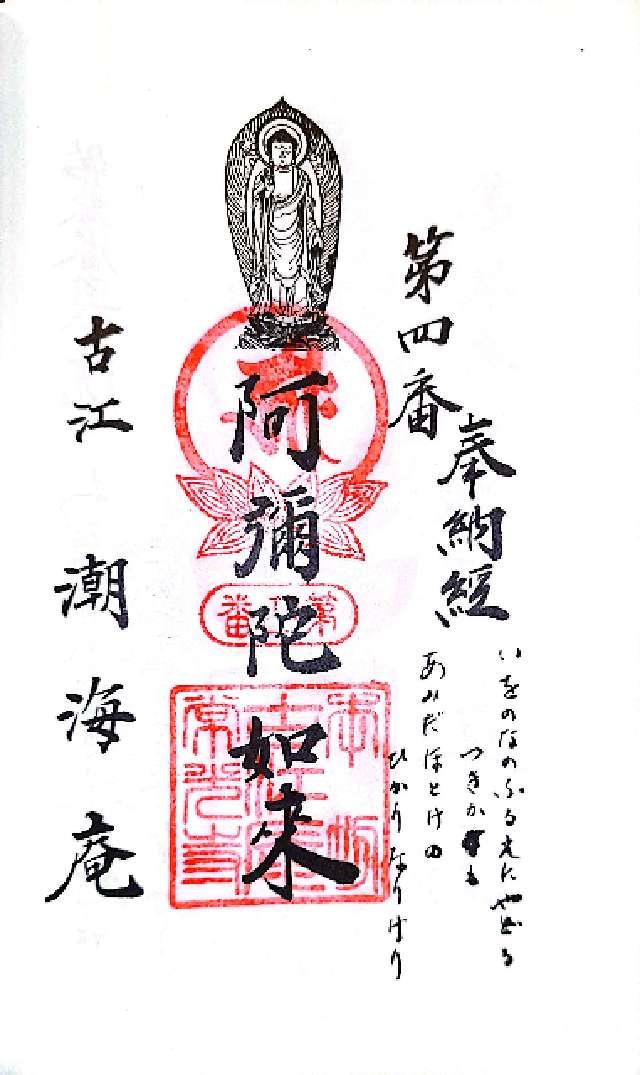 奉納経
第四番
いをのなのふるえにやどる
つきかげも
あみだほとけの
ひかりなりけり
阿彌陀如来
常光寺
古江 潮海庵